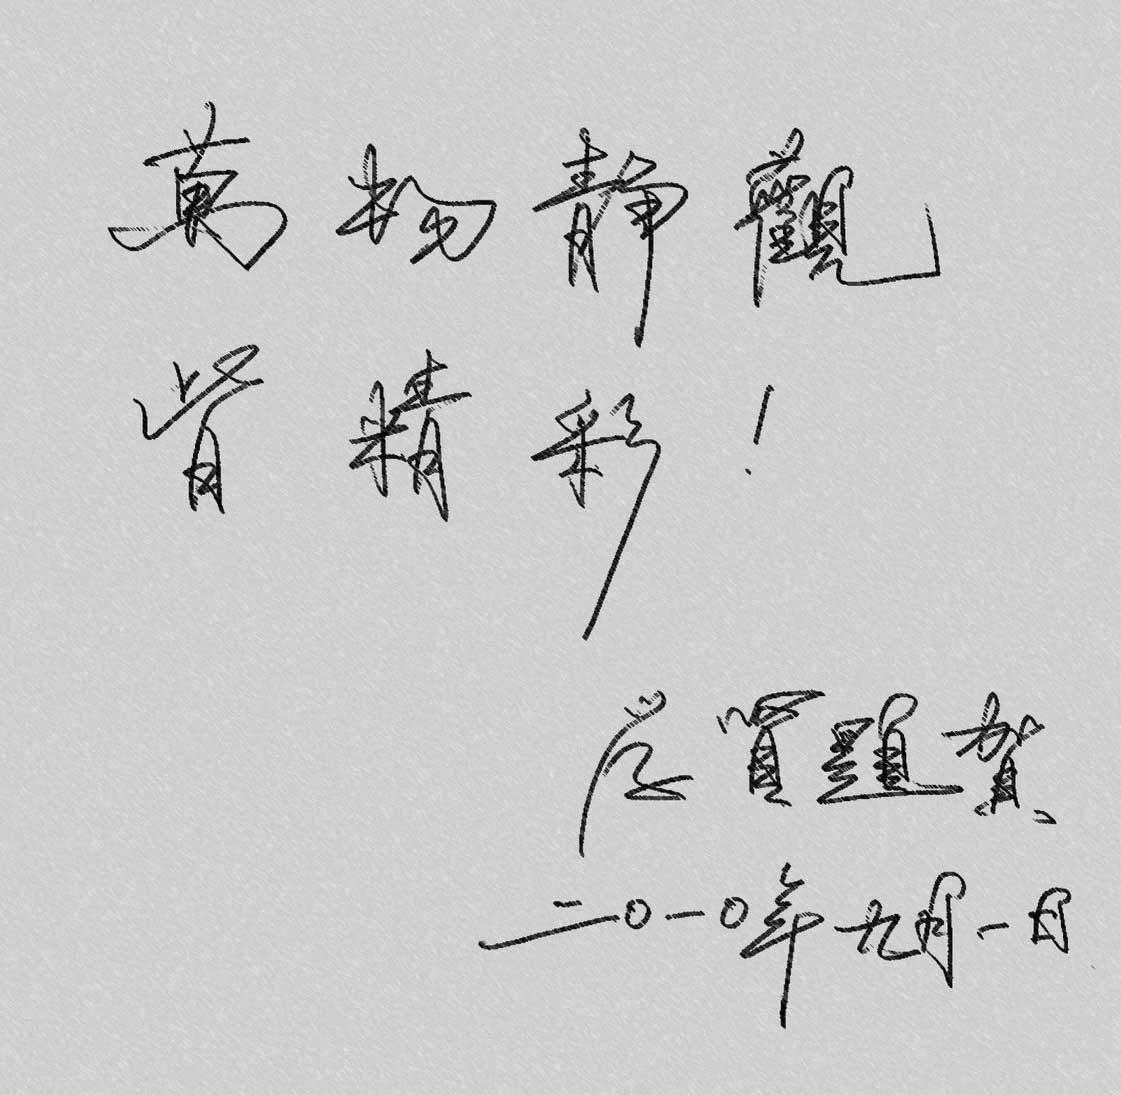 萬物靜觀
皆精彩！
題賀
二〇一〇年九月一日